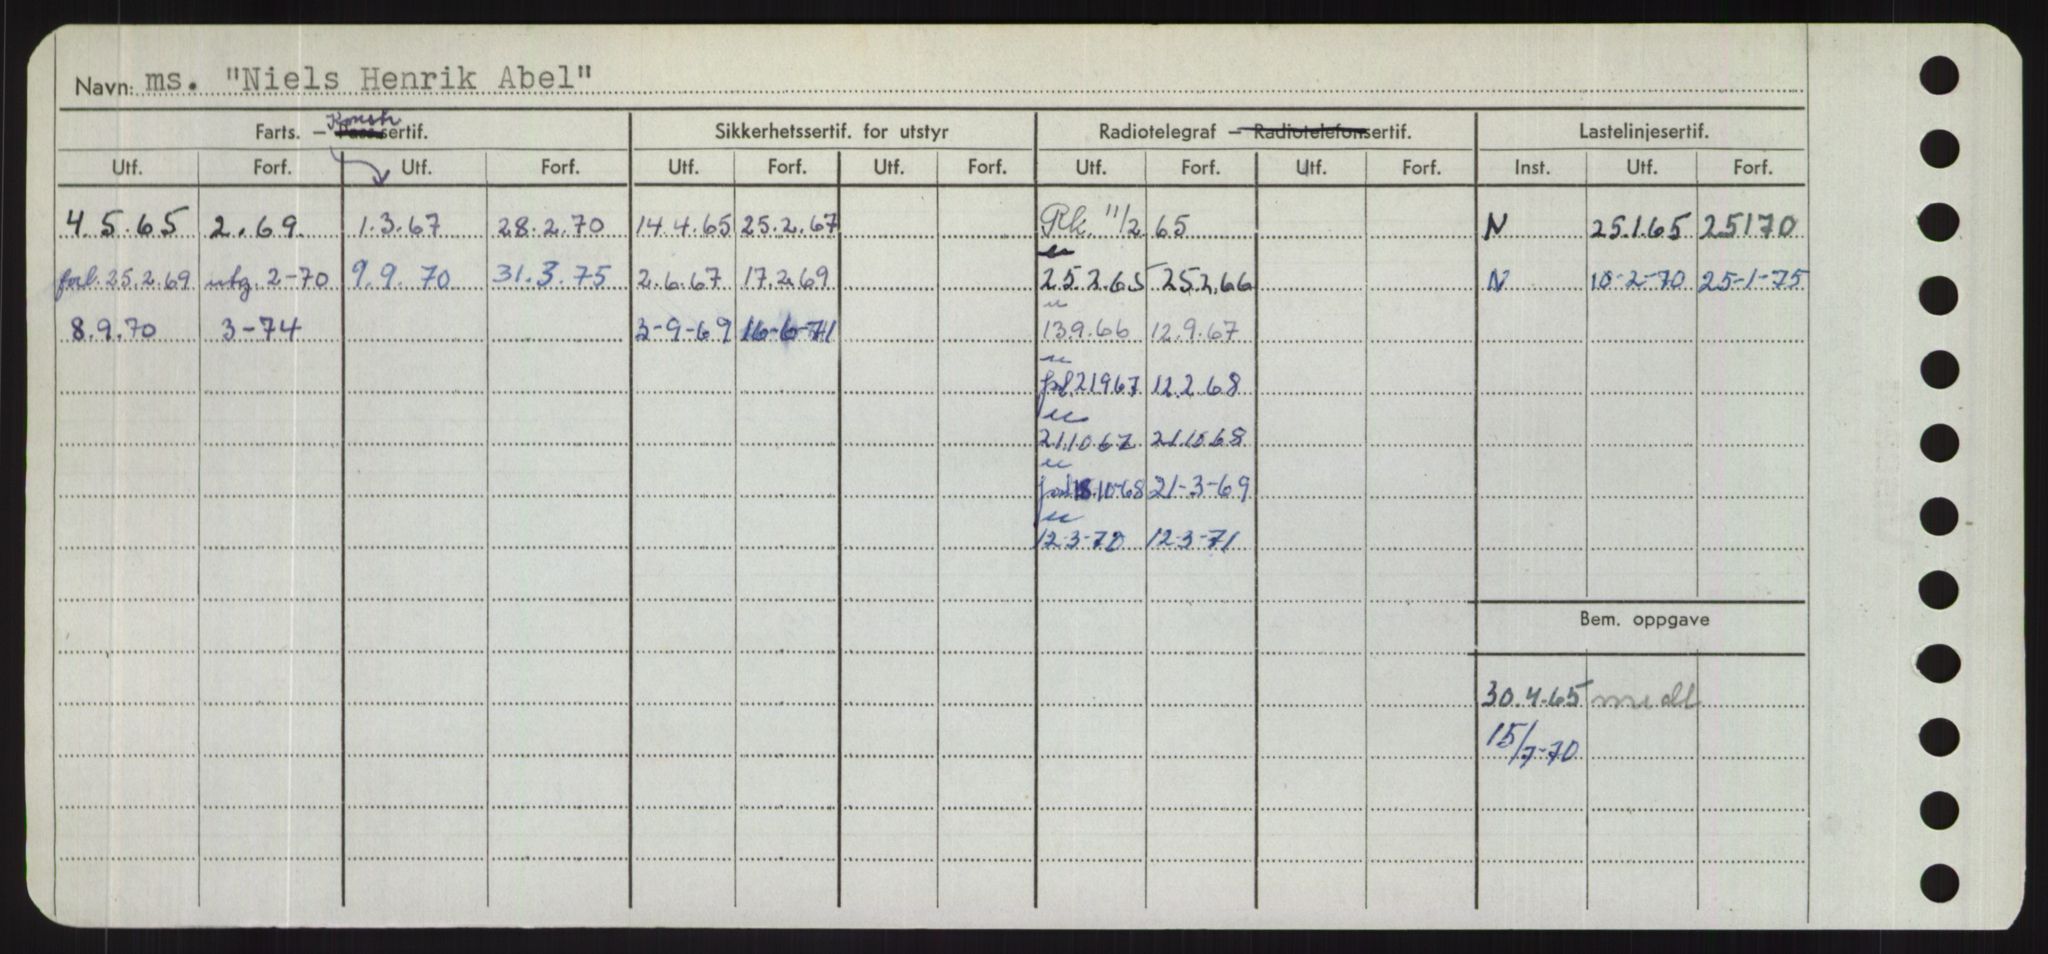 Navn: ms. "Niels Henrik Abel"
Konstr
Farts. – Pass.sertif. Sikkerhetssertif. for utstyr Radiotelegraf – Radiotelefonsertif. Lastelinjesertif.
Utf. Forf. Utf. Forf. Utf. Forf. Utf. Forf. Utf. Forf. Utf. Forf. Inst. Utf. Forf.
4.5.65 2.69. 1.3.67 28.2.70 14.4.65 25.2.67 Rk. 11/2 65 N 25.1.65 25170
forl. 25.2.69 utg. 2-70 9.9.70 31.3.75 2.6.67 17.2.69 25.2.65 25.2.66 N 10-2-70 25-1-75
8.9.70 3-74 3-9-69 16-6-71 13.9.66 12.9.67
forl. 21967 12.2.68
21.10.67 21.10.68
forl 18.10-68 21-3-69
12-3-70 12-3-71
Bem. oppgave
30.4.65 midl
15/7-70